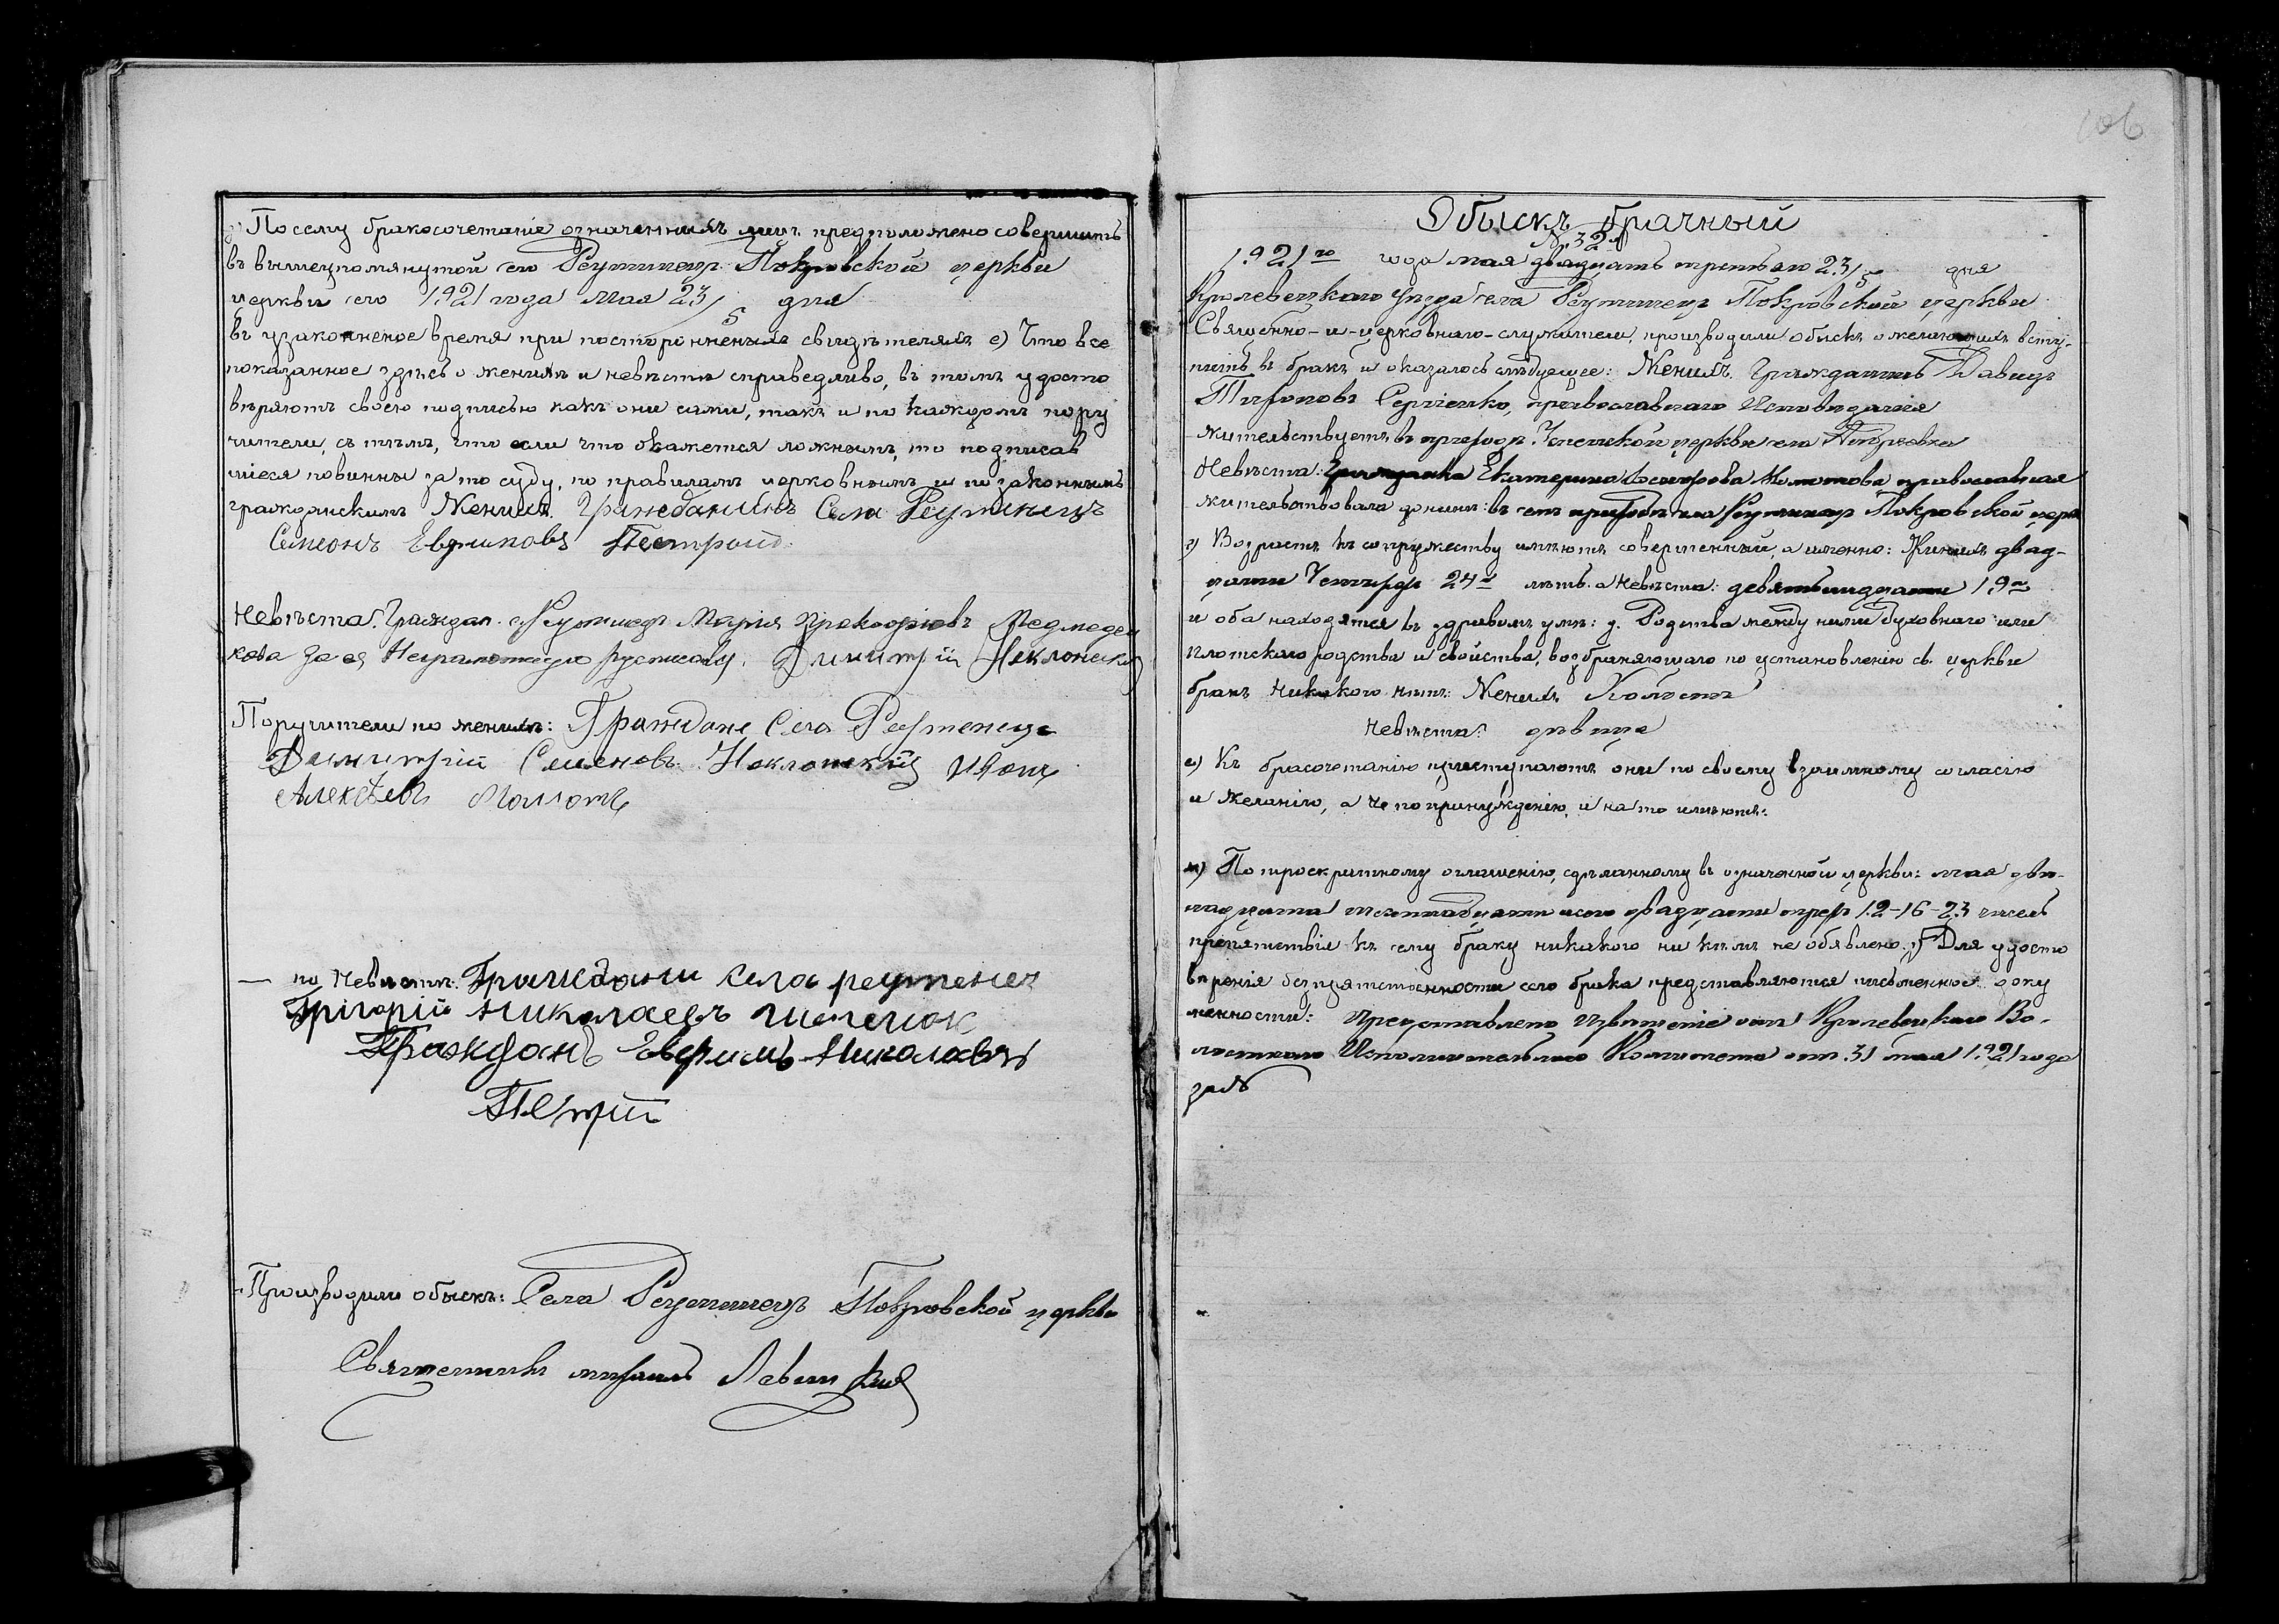 Посему бракосочетаніе означенныхъ лицъ предположено совершить
въ вышеупомянутой сего Реутинецъ Покровской церкви
церкви сего 1921 года Мая 23/5 дня
въ узаконненое время при посторонненыхъ свидѣтеляхъ е) Что все
показанное здѣсь о женихѣ и невѣстѣ справедливо, въ томъ удосто
вѣряютъ своею подписью какъ они сами, такъ и по каждомъ пору
чители, съ тѣмъ, что если что окажется ложнымъ, то подписав
шіеся повинны за то суду, по правиламъ церковнымъ и по законнымъ
гражданскимъ Женихъ. Гражданинъ Села Реутинецъ
Симеонъ Евфимовъ Пестрый
Невѣста. Граждан. с Реутинецъ Марія Прокофіовъ Медведен
кова За ея Неграмотную росписался Димитрій Неклонскій
Поручители по женихѣ: Граждане Села Реутенецъ
Димитрій Семеновъ Неклонскій Иванъ
Алексѣевъ Молотъ
— по Невѣстѣ. Граждани села реутенец
Грігорій Николаевъ
Граждан Евфимъ Николаевъ
Производили обыскъ: Села Реутинецъ Покровской церкви
Священникъ Михаилъ Левицкій
106
Обыскъ брачный
№ 32
1921го года мая двадцать третьяго 23/5 дня
Кролевецкаго Уѣзда села Реутинецъ Покровской церкви
Священно-и-церковнаго-служители, производили обыскъ о желающихъ всту-
пить въ бракъ и оказалось слѣдующее: Женихъ. Гражданинъ Давидъ
Сергіенко, православнаго Исповѣданія
жительствуетъ въ приходѣ Успенской церкви села
Невѣста: Гражданка Екатерина Молотова православная
жительствовала донынѣ: въ семъ приходѣ села Реутинецъ Покровской церк
г) Возрастъ къ супружеству имѣютъ совершенный, а именно: Женихъ двад-
цати Четырехъ 24х лѣтъ. а Невѣста: девятьнадцати 19ти
и оба находятся въ здравомъ умѣ: д. Родства между ними Духовнаго или
плотскаго родства и свойства, возбраняющаго по установленію св. церкви
бракъ никакого нѣтъ: Женихъ Холостъ
Невѣста: дѣвица
е) Къ брасочетанію приступаютъ они по своему взаимному согласію
и желанію, а не по принужденію, и на то имѣютъ:
ж) По троекратному оглашенію, сдѣланному въ означенной церкви: мая двѣ-
надцата шестнадцати и сего двадцати трехъ 12-16-23 чиселъ
препятствіе къ сему браку никакого ни кѣмъ не обявлено. з) Для удосто
вѣренія безпрятственности сего брака представляются письменное доку
менности: Представлено Извѣщеніе отъ Кролевецкаго Во-
лостнаго Исполнительнаго Комитета отъ 31 мая 1921 года
за №